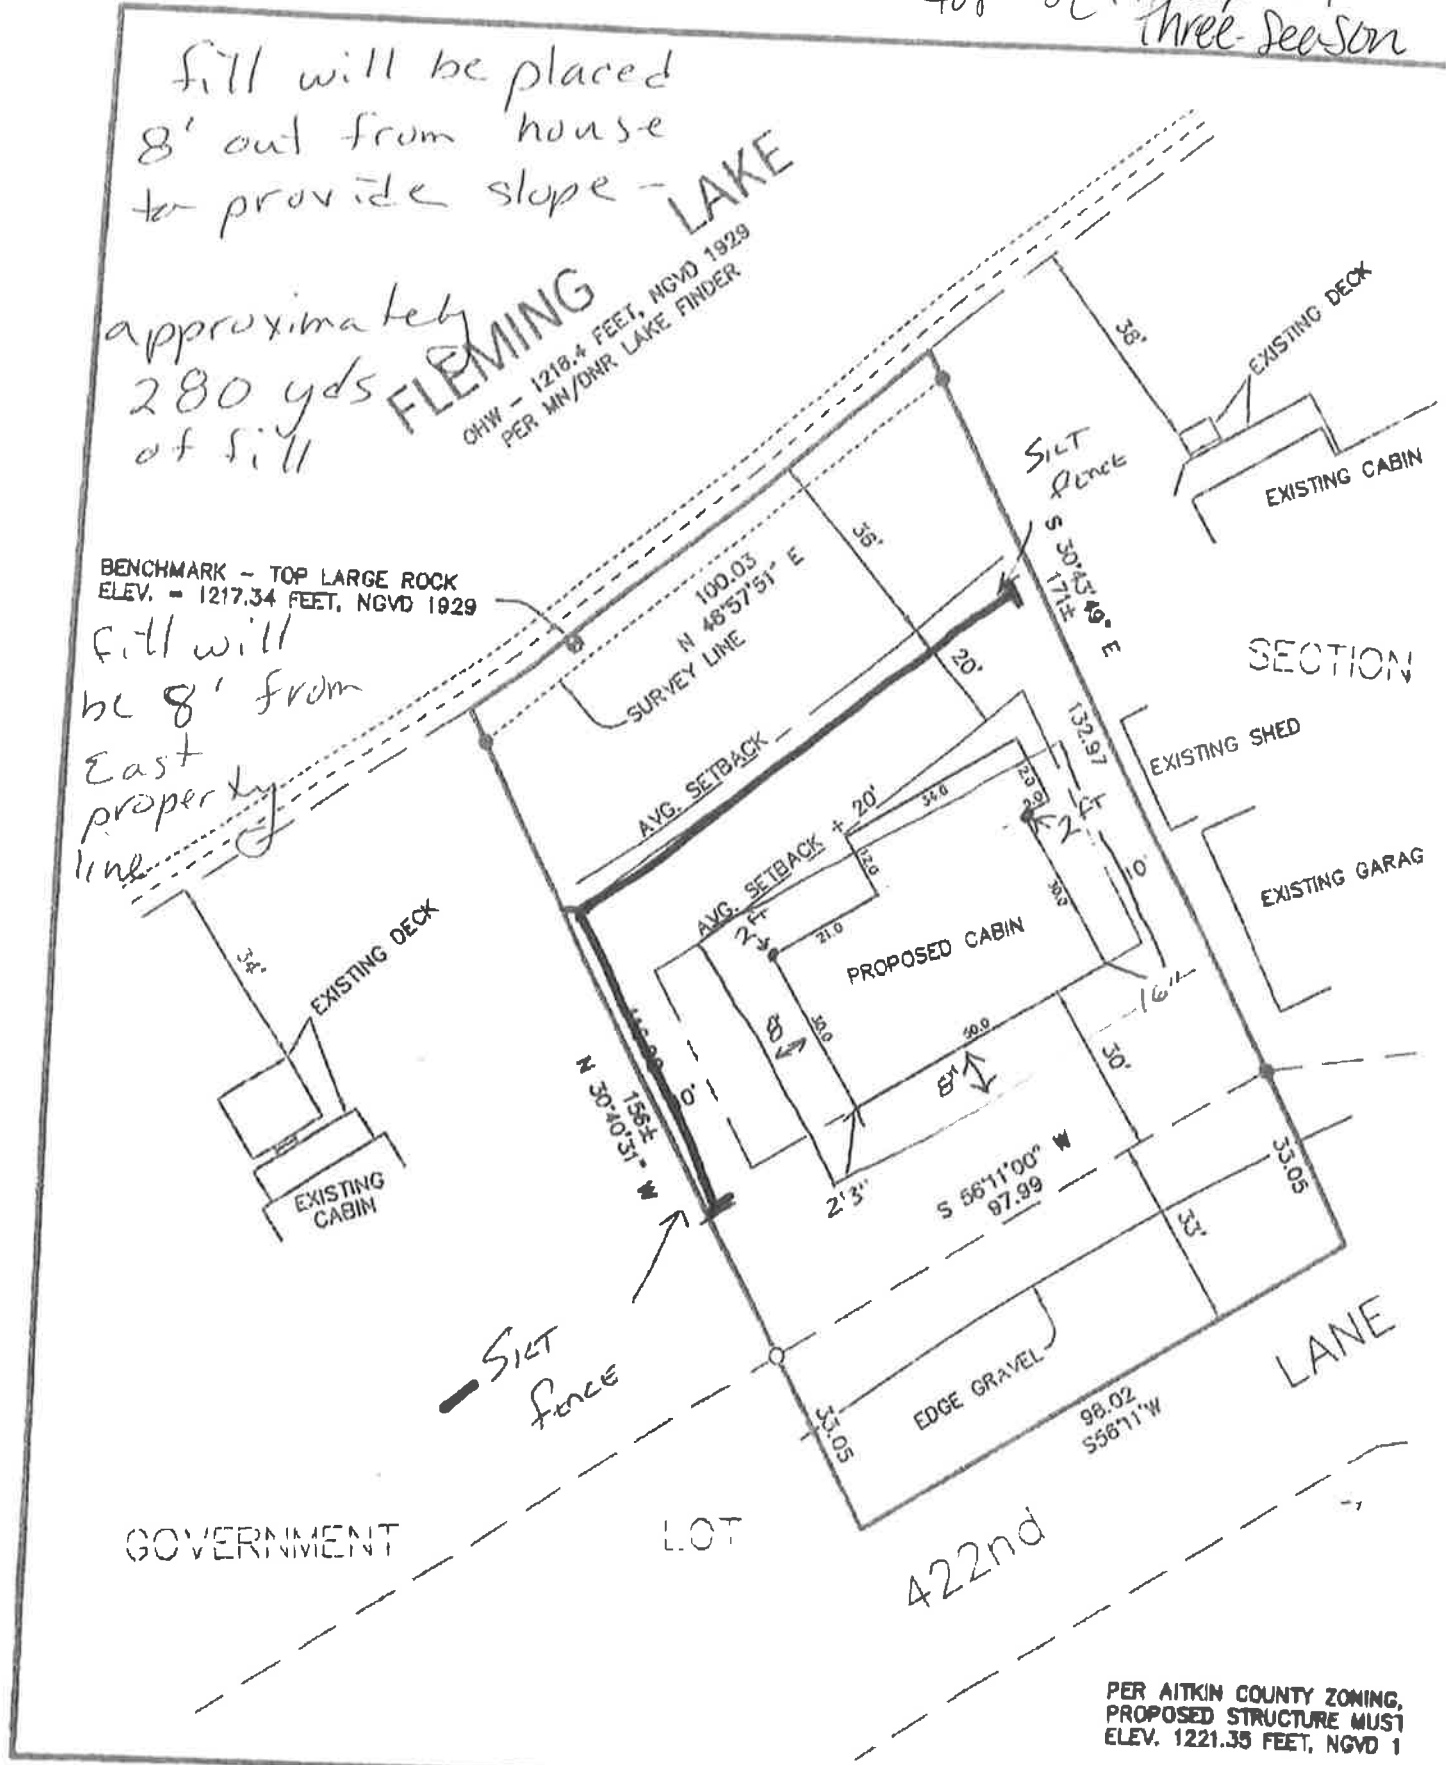 three-season
fill will be placed
8' out from house
to provide slope -
approximately
280 yds
of fill
FLEMING LAKE
OHW - 1218.4 FEET, NGVD 1929
PER MN/DNR LAKE FINDER
BENCHMARK - TOP LARGE ROCK
ELEV. = 1217.34 FEET, NGVD 1929
fill will
be 8' from
East
property
line
38'
EXISTING DECK
EXISTING CABIN
SILT
fence
S 30°43'49" E
171±
36'
100.03
N 48°57'51" E
SURVEY LINE
20'
SECTION
132.97
EXISTING SHED
AVG. SETBACK
EXISTING GARAG
AVG. SETBACK + 20'
34.0
2.0
2.0
2 ft
12.0
10'
30.0
2 ft
21.0
PROPOSED CABIN
34'
EXISTING DECK
16"
8'
30.0
50.0
8"
30'
156±
N 30°40'31" W
0'
EXISTING
CABIN
2'3"
S 56°11'00" W
97.99
33.05
33'
SILT
fence
EDGE GRAVEL
33.05
98.02
S56°11'W
LANE
GOVERNMENT
LOT
422nd
PER AITKIN COUNTY ZONING,
PROPOSED STRUCTURE MUST
ELEV. 1221.35 FEET, NGVD 1